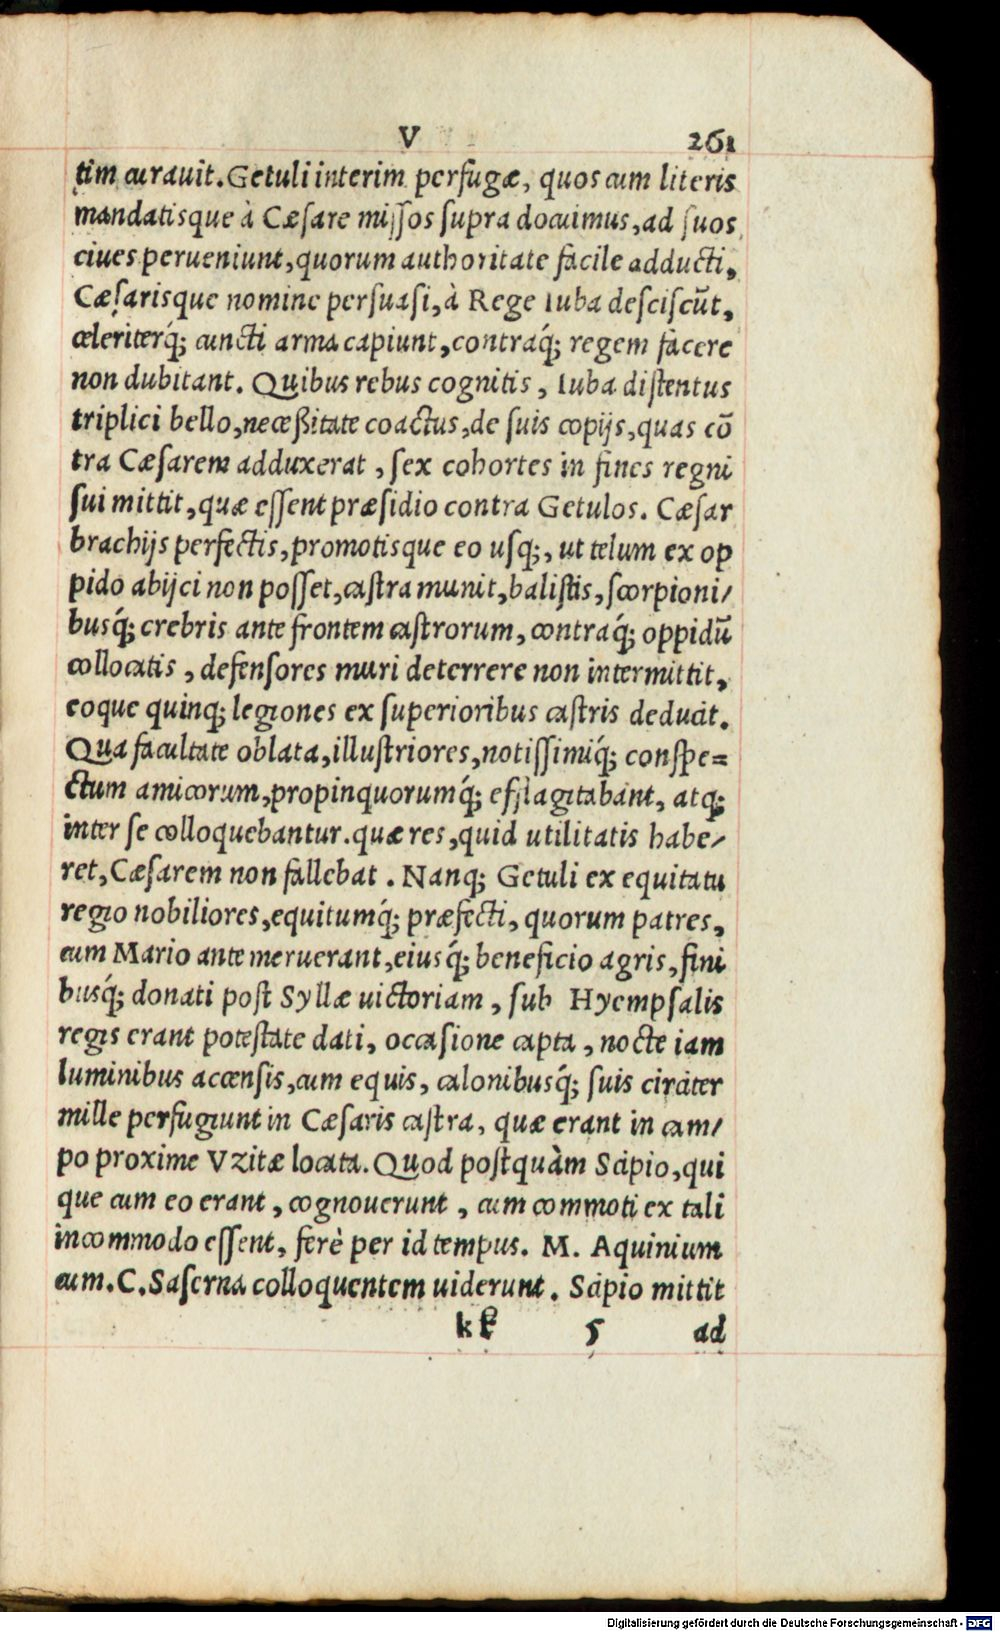 V 261
tim curauit. Getuli interim perfugæ, quos cum literis
mandatisque à Cæſare miſſos ſupra docuimus, ad ſuos
ciues perueniunt, quorum authoritate facile adducti,
Cæſarisque nomine perſuaſi, à Rege Iuba deſciſcũt,
celeriterq́; cuncti arma capiunt, contraq́; regem facere
non dubitant. Quibus rebus cognitis, Iuba diſtentus
triplici bello, neceßitate coactus, de ſuis copijs, quas cō
tra Cæſarem adduxerat, ſex cohortes in fines regni
ſui mittit, quæ eſſent præſidio contra Getulos. Cæſar
brachijs perfectis, promotisque eo uſq;, ut telum ex op
pido abijci non poſſet, caſtra munit, baliſtis, ſcorpioni/
busq́; crebris ante frontem caſtrorum, contraq́; oppidũ
collocatis, defenſores muri deterrere non intermittit,
eoque quinq; legiones ex ſuperioribus caſtris deducit.
Qua facultate oblata, illuſtriores, notiſſimiq́; conſpe=
ctum amicorum, propinquorumq́; efflagitabant, atq;
inter ſe colloquebantur. quæ res, quid utilitatis habe/
ret, Cæſarem non fallebat. Nanq; Getuli ex equitatu
regio nobiliores, equitumq́; præfecti, quorum patres,
cum Mario ante meruerant, eiusq́; beneficio agris, fini
busq́; donati poſt Syllæ uictoriam, ſub Hyempſalis
regis erant poteſtate dati, occaſione capta, nocte iam
luminibus accenſis, cum equis, calonibusq́; ſuis circiter
mille perfugiunt in Cæſaris caſtra, quæ erant in cam/
po proxime Vzitæ locata. Quod poſtquàm Scipio, qui
que cum eo erant, cognouerunt, cum commoti ex tali
incommodo eſſent, ferè per id tempus. M. Aquinium
cum. C. Saſerna colloquentem uiderunt. Scipio mittit
kk 5 ad
Digitalisierung gefördert durch die Deutsche Forschungsgemeinschaft - DFG